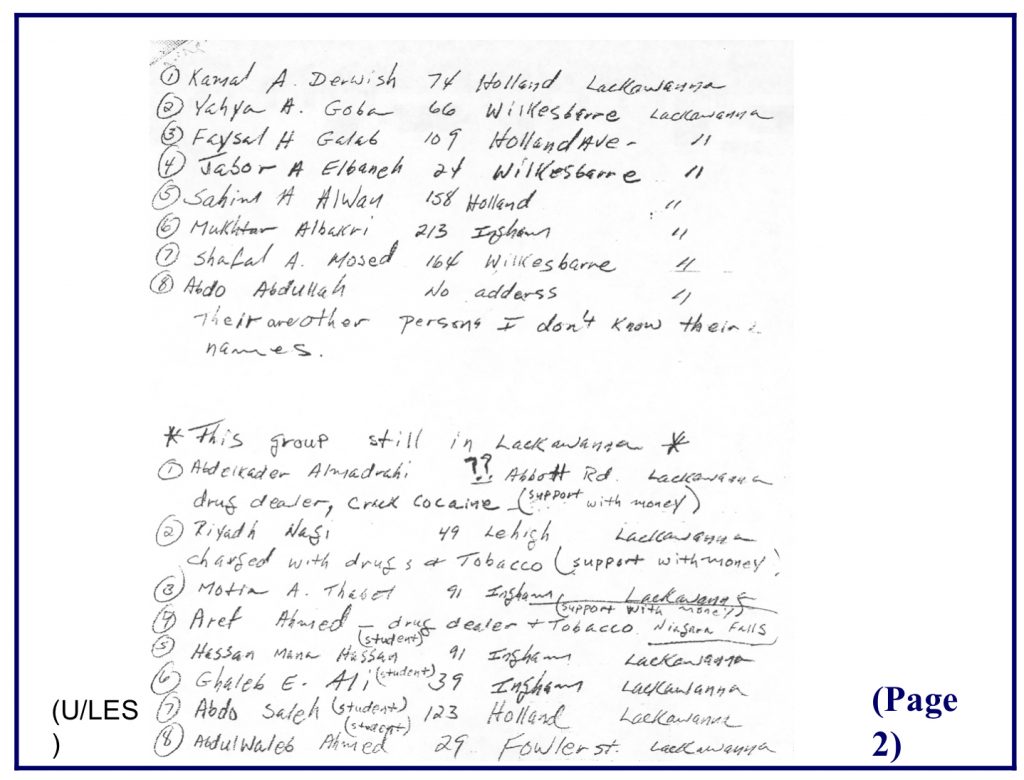 ① Kamal A. Derwish 74 Holland Lackawanna
② Yahya A. Goba 66 Wilkesbarre Lackawanna
③ Faysal H Galab 109 Holland Ave - "
④ Jabor A Elbaneh 24 Wilkesbarre "
⑤ Sahim A Alwan 158 Holland "
⑥ Mukhtar Albakri 213 Ingham "
⑦ Shafal A. Mosed 164 Wilkesbarre "
⑧ Abdo Abdullah No adderss "
Their are other persons I don't know their
names.
* This group still in Lackawanna *
① Abdelkader Almadrahi ?? Abbott Rd. Lackawanna
drug dealer, Crack Cocaine (support with money)
② Riyadh Nagi 49 Lehigh Lackawanna
charged with drugs & Tobacco (support with money)
③ Motia A. Thabet 91 Ingham Lackawanna
(support with money)
④ Aref Ahmed - drug dealer + Tobacco Niagara Falls
(student)
⑤ Hassan Mana Hassan 91 Ingham Lackawanna
⑥ Ghaleb E. Ali (student) 39 Ingham Lackawanna
⑦ Abdo Saleh (student) 123 Holland Lackawanna
(student)
⑧ AbdulWaleb Ahmed 29 Fowler st. Lackawanna
(U/LES
)
(Page
2)